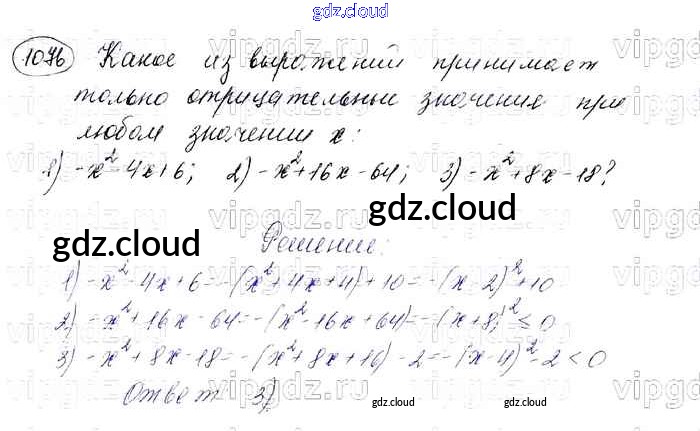 gdz.cloud
1076 Какое из выражений принимает
только отрицательные значения при
любом значении x:
1) -x²-4x+6; 2) -x²+16x-64; 3) -x²+8x-18?
gdz.cloud
gdz.cloud
Решение:
1) -x²-4x+6=-(x²+4x+4)+10=-(x-2)²+10
2) -x²+16x-64=-(x²-16x+64)=-(x+8)²≤0
3) -x²+8x-18=-(x²+8x+16)-2=-(x-4)²-2<0
Ответ 3)
gdz.cloud gdz.cloud